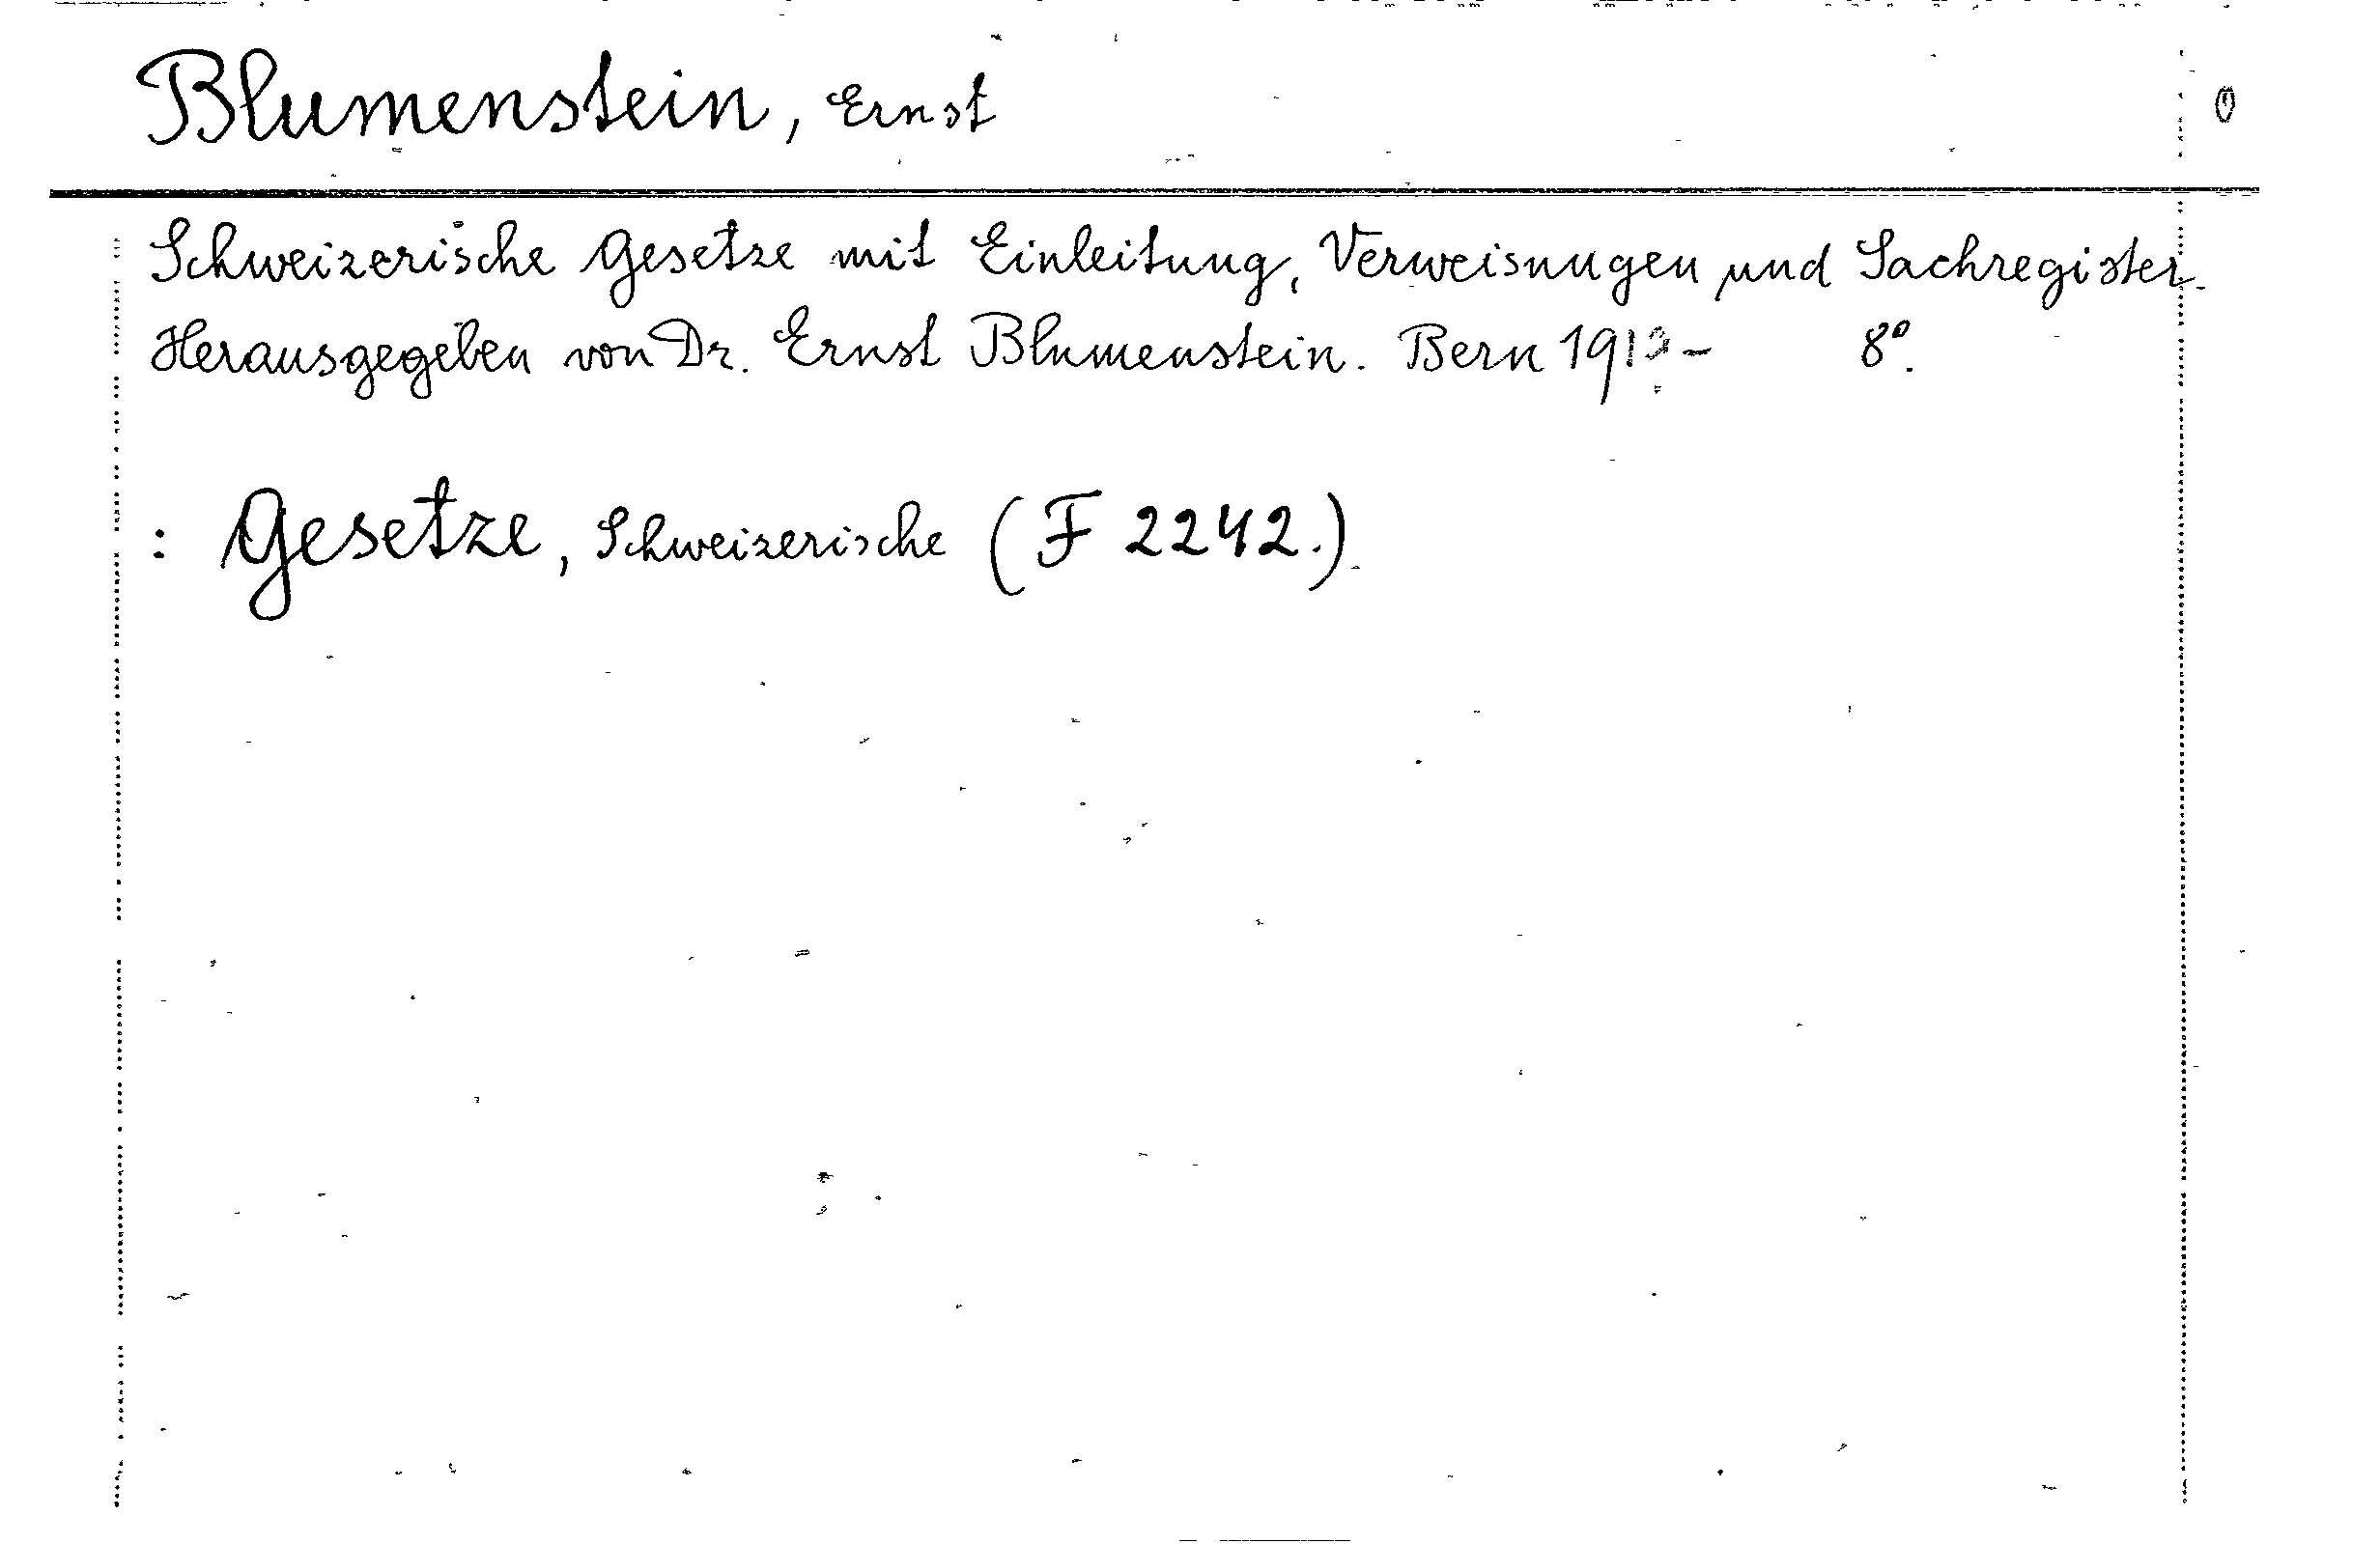 Blumenstein, Ernst
Schweizerische Gesetze mit Einleitung, Verweisungen und Sachregister.
Herausgegeben von Dr. Ernst Blumenstein. Bern - 8°.
: Gesetze, Schweizerische (F 2242.).